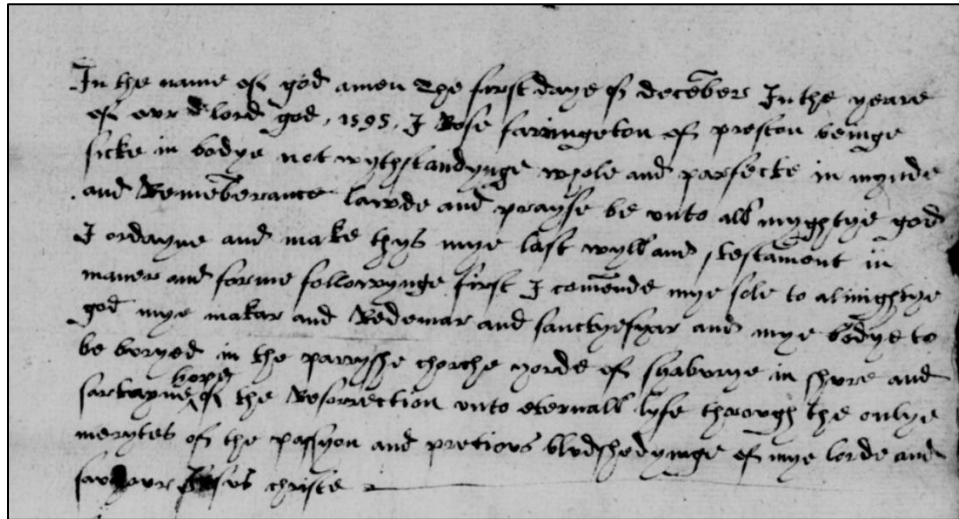 In the name of god amen The first daye of decēber In the yeare
of owr lord god, 1595, I Rose farringeton of preston beinge
sicke in bodye not wythstandynge whole and parfecte in mynde
and Remēberance lawde and prayse be unto all myghtye god
I ordayne and make thys mye last wyll and testament in
maner and forme followynge first I comēnde mye sole to almightye
god mye makar and Redemar and sanctyfyar and mye bodye to
be buryed in the parryshe chorche yorde of in shure and
sartayne hope of the Resorrection unto eternall lyfe throwgh the onlye
merytes of the passyon and pretious bludshedynge of mye lorde and
saviour Jesus christe